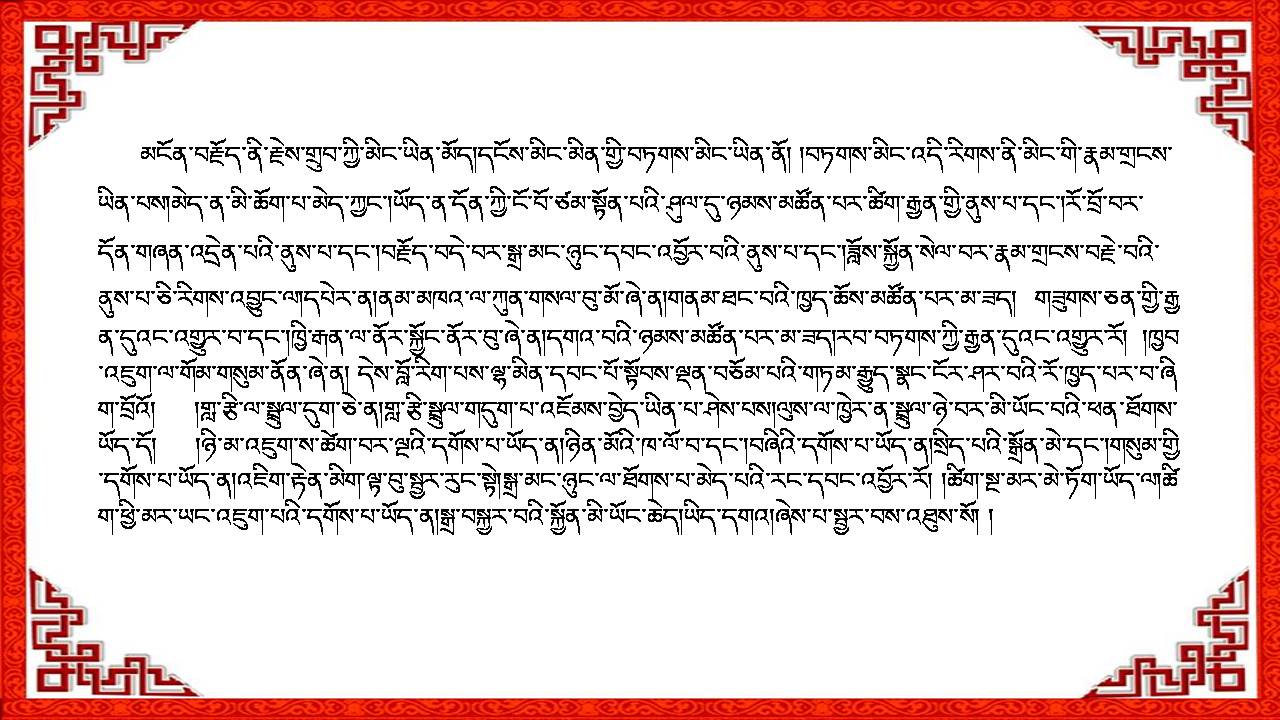 མངོན་བརྗོད་ནི་རྗེས་གྲུབ་ཀྱི་མིང་ཡིན་མོད།དངོས་མིང་མིན་གྱི་བཏགས་མིང་ཡིན་ནོ། །བཏགས་མིང་འདི་རིགས་ནི་མིང་གི་རྣམ་གྲངས་
ཡིན་པས།མེད་ན་མི་ཆོག་པ་མེད་ཀྱང་།ཡོད་ན་དོན་ཀྱི་ངོ་བོ་ཙམ་སྟོན་པའི་ཤུལ་དུ་ཉམས་མཚོན་པར་ཚིག་རྒྱན་གྱི་ནུས་པ་དང་།རོ་བྲོ་བར་
དོན་གཞན་འདྲེན་པའི་ནུས་པ་དང་།བརྗོད་བདེ་བར་སྒྲ་མང་ཉུང་དབང་འབྱོར་བའི་ནུས་པ་དང་།ཟློས་སྐྱོན་སེལ་བར་རྣམ་གྲངས་བརྗེ་བའི་
ནུས་པ་ཅི་རིགས་འབྱུང་ལ།དཔེར་ན།ནམ་མཁའ་ལ་ཀུན་གསལ་བུ་མོ་ཞེ་ན།གནམ་ཐང་བའི་ཁྱད་ཆོས་མཚོན་པར་མ་ཟད། གཟུགས་ཅན་གྱི་རྒྱ
ན་དུའང་འགྱུར་བ་དང་།ཁྱི་རྒན་ལ་ནོར་སྐྱོང་ནོར་བུ་ཞེ་ན།དགའ་བའི་ཉམས་མཚོན་པར་མ་ཟད།རབ་བཏགས་ཀྱི་རྒྱན་དུའང་འགྱུར་རོ། །ཁྱབ
་འཇུག་ལ་གོམ་གསུམ་ནོན་ཞེ་ན། དེས་བློ་རིག་པས་ལྷ་མིན་དབང་པོ་སྟོབས་ལྡན་བཅོམ་པའི་གཏམ་རྒྱུད་སྣང་ངོར་ཤར་བའི་རོ་ཁྱད་པར་བ་ཞི
ག་བྲོའོ། །གླ་རྩི་ལ་སྦྲུལ་དུག་ཅེ་ན།གླ་རྩི་སྦྲུལ་གདུག་པ་འཇོམས་བྱེད་ཡིན་པ་ཤེས་པས།ལུས་ལ་ཁྱེར་ན་སྦྲུལ་ཉེ་བར་མི་ཡོང་བའི་ཕན་ཐོགས་
ཡོད་དོ། །ཉི་མ་འཇུག་ས་ཚེག་བར་ལྔའི་དགོས་པ་ཡོད་ན།ཉིན་མོའི་ཁ་ལོ་བ་དང་།བཞིའི་དགོས་པ་ཡོད་ན།སྲིད་པའི་སྒྲོན་མེ་དང་།གསུམ་གྱི
་དགོས་པ་ཡོད་ན།འཇིག་རྟེན་མིག་ལྟ་བུ་སྦྱར་རུང་སྟེ།སྒྲ་མང་ཉུང་ལ་ཐོགས་པ་མེད་པའི་རང་དབང་འབྱོར་རོ། །ཚིག་སྔ་མར་མེ་ཏོག་ཡོད་ལ།ཚི
ག་ཕྱི་མར་ཡང་འཇུག་པའི་དགོས་པ་ཡོད་ན།སྒྲ་བསྐྱར་བའི་སྐྱོན་མི་ཡོང་ཆེད།ཡིད་དགའ།ཞེས་པ་སྦྱར་བས་འཐུས་སོ། །